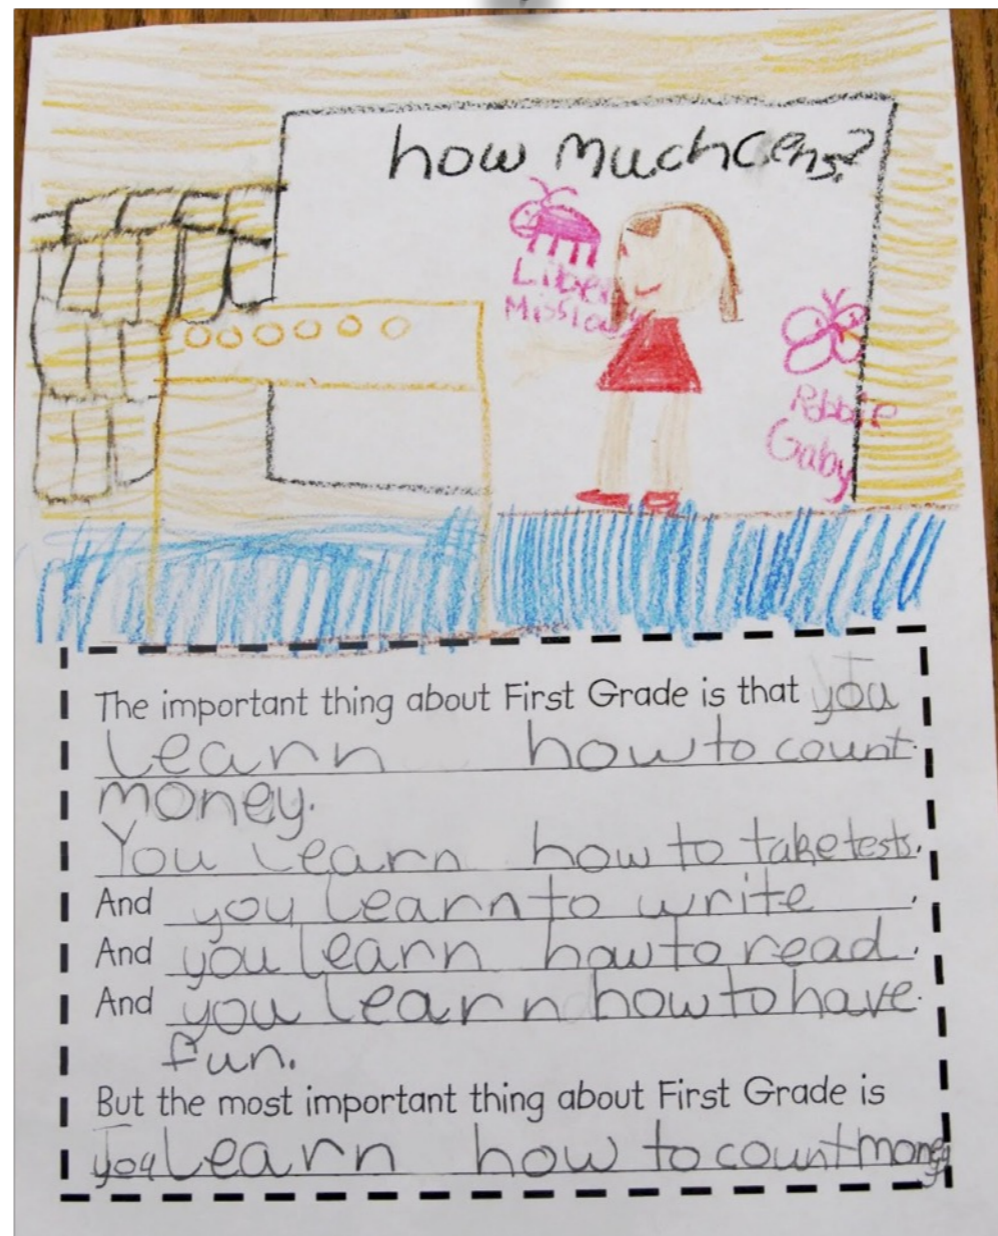 how much cens?
Liberty
Mission
Robbie
Gaby
The important thing about First Grade is that you
learn how to count
money.
You learn how to take tests.
And you learn to write.
And you learn how to read.
And you learn how to have
fun.
But the most important thing about First Grade is
you learn how to count money